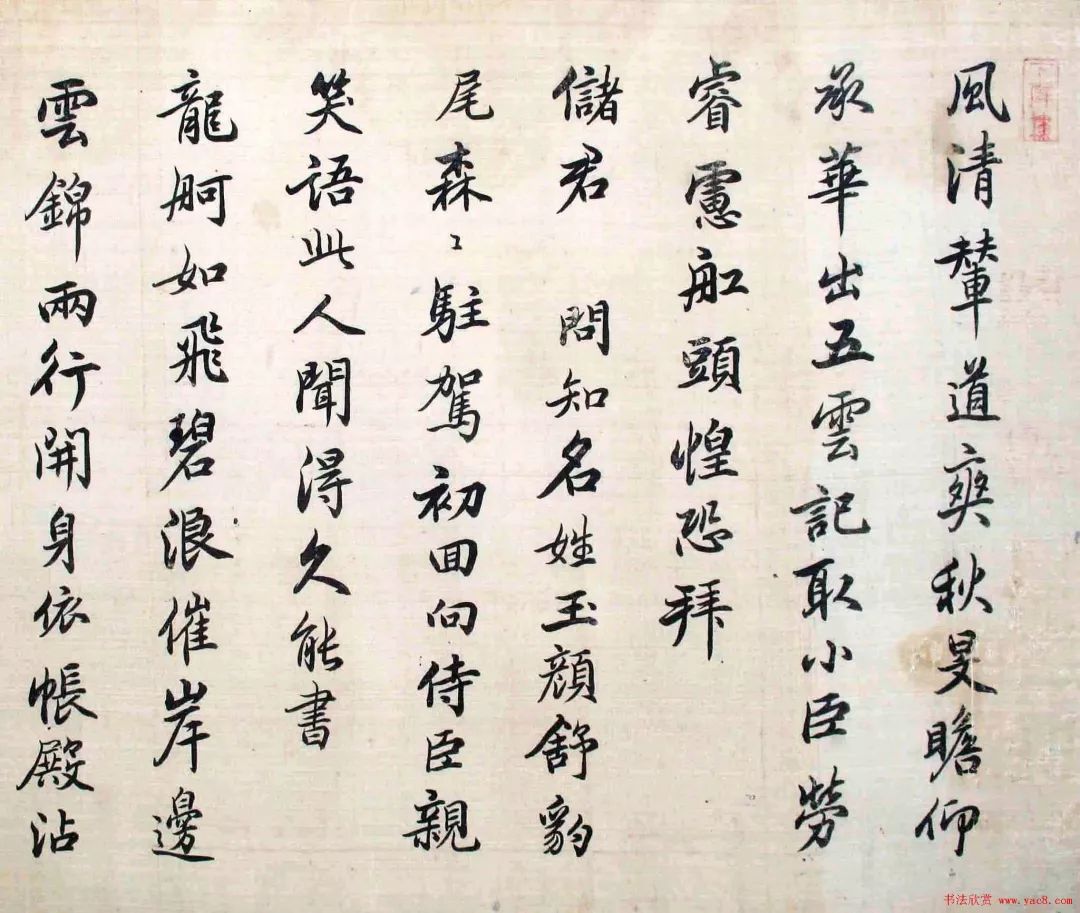 風清輦道爽秋旻瞻仰
承華出五雲記取小臣勞
睿慮舡頭惶恐拜
儲君 問知名姓玉顏舒豹
尾森〻駐駕初回向侍臣親
笑語此人聞得久能書
龍舸如飛碧浪催岸邊
雲錦兩行開身依帳殿沾
书法欣赏 www.yac8.com